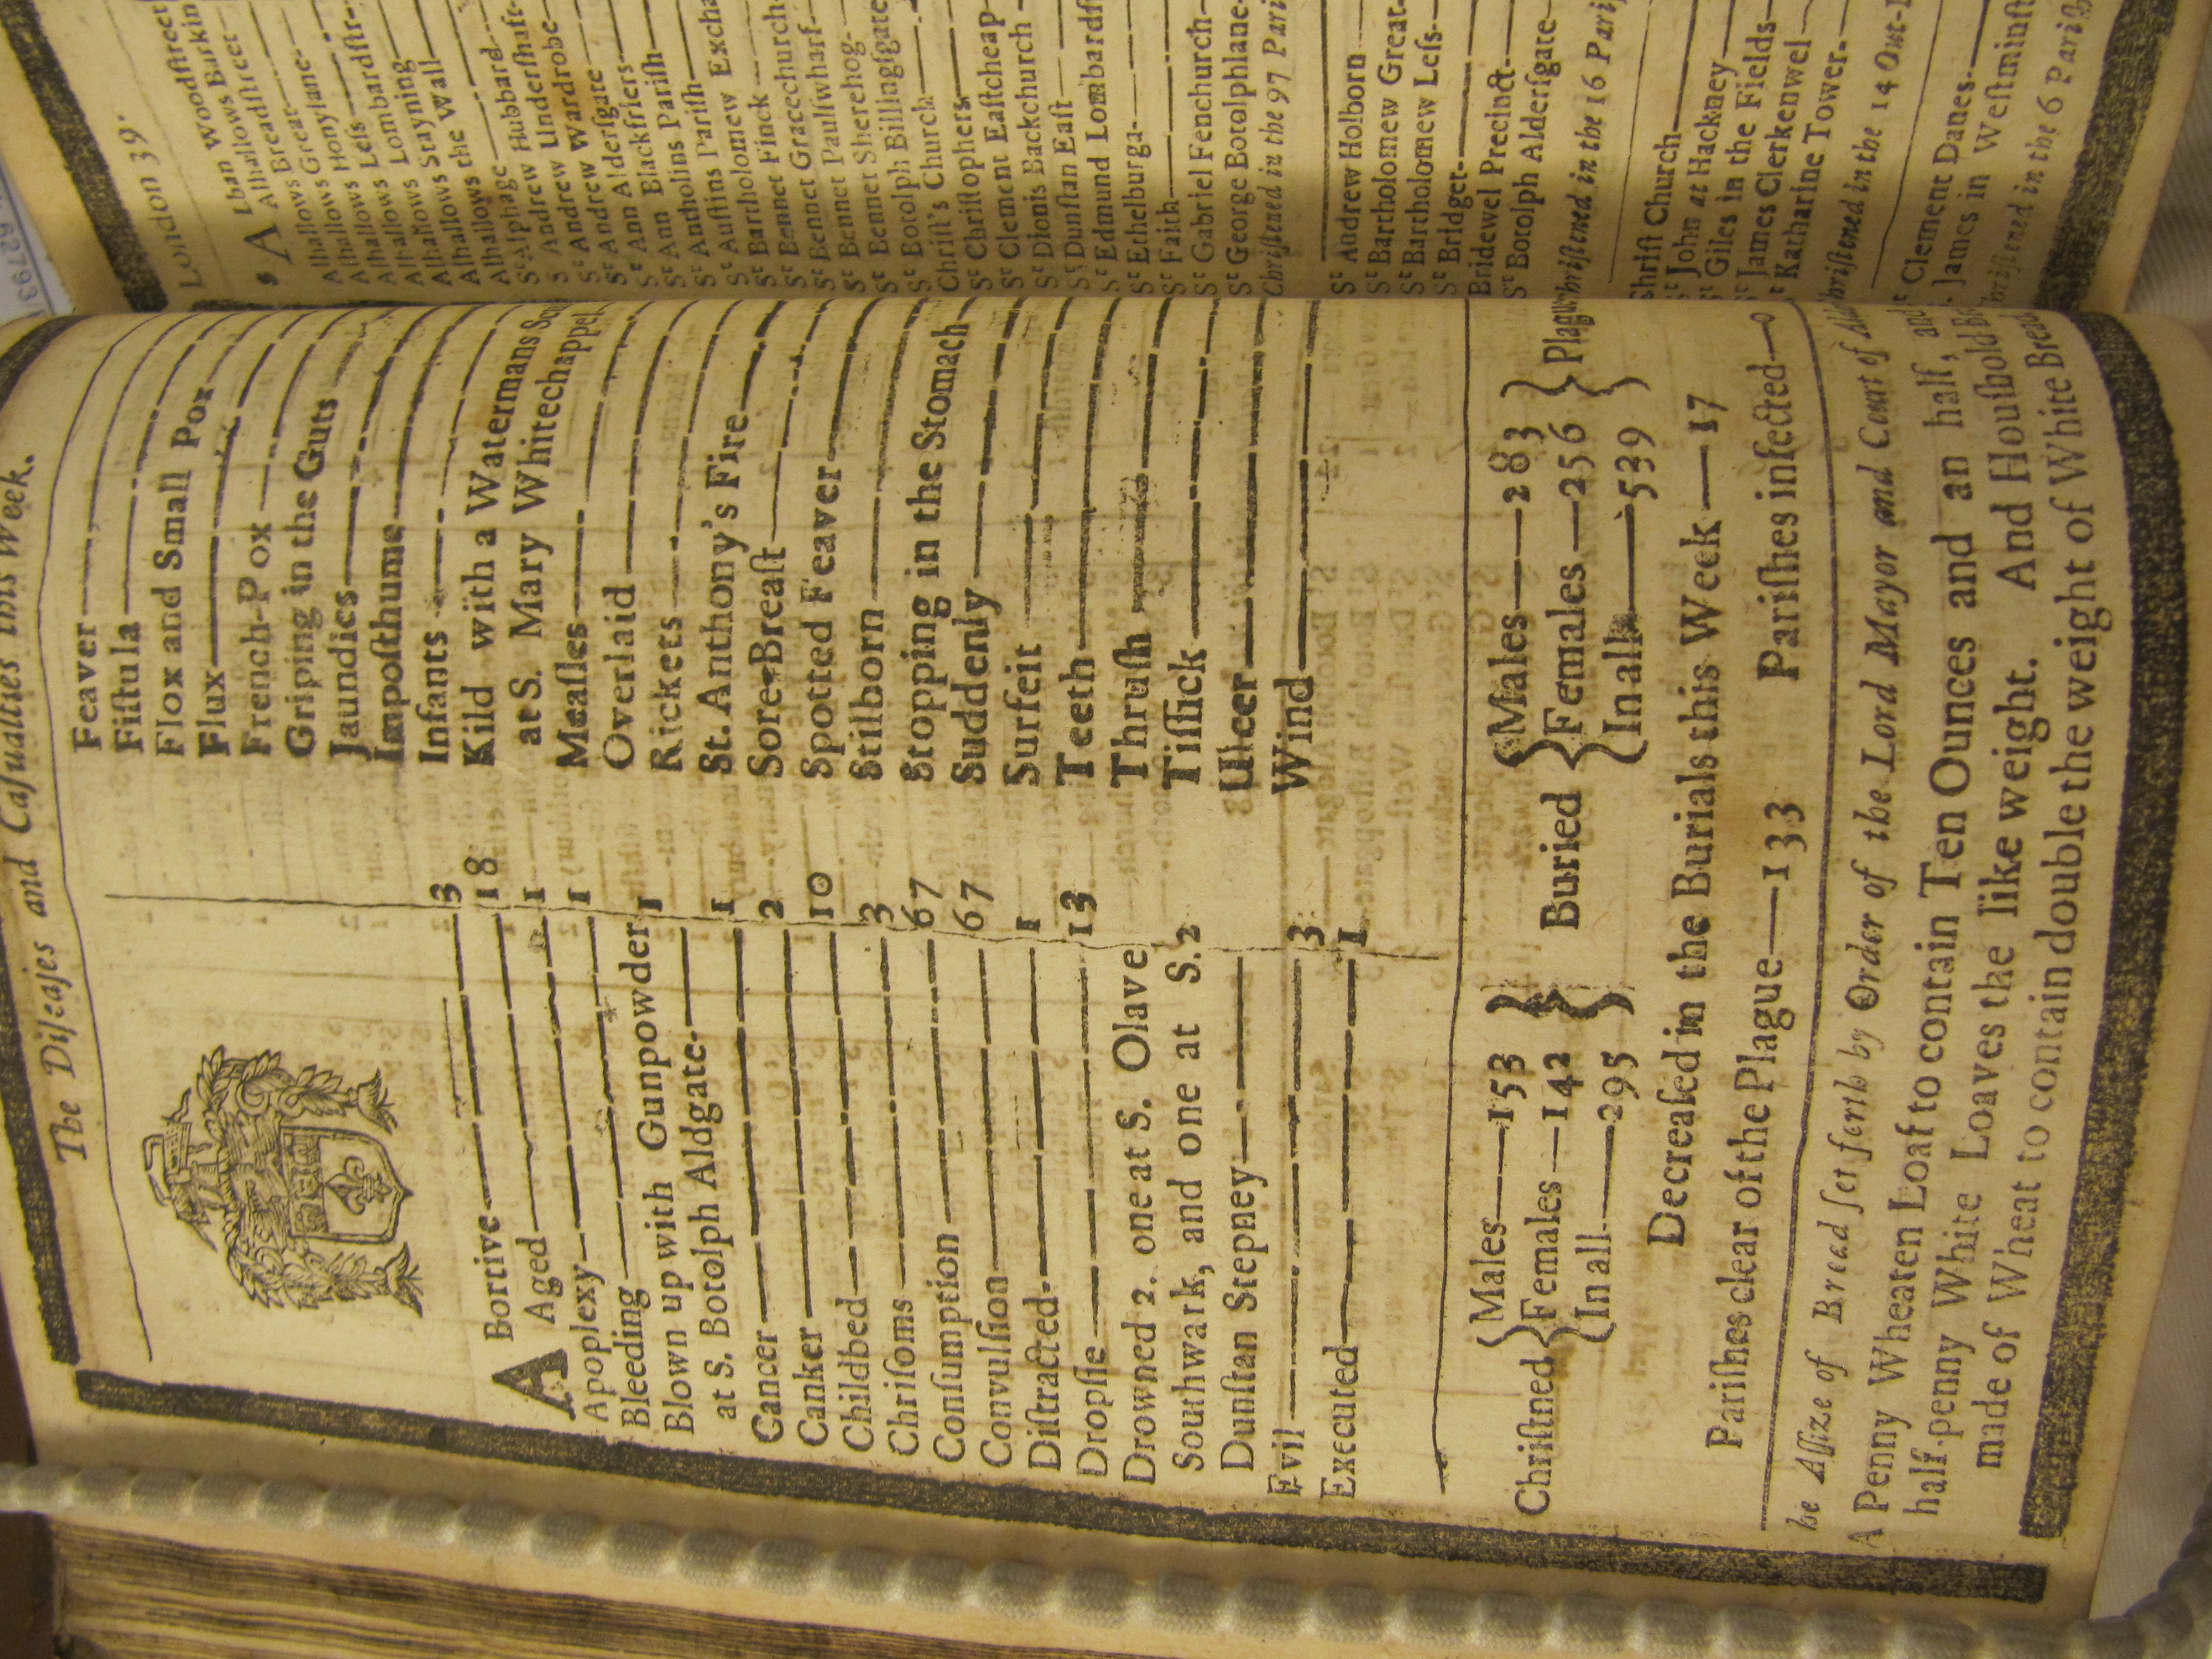 The Diſeaſes and Caſualties this Week.
ABortive 3
Aged 18
Apoplexy 1
Bleeding 1
Blown up with Gunpowder 1
at S. Botolph Aldgate 1
Cancer 2
Canker 10
Childbed 3
Chriſoms 67
Conſumption 67
Convulſion 1
Diſtracted 13
Dropſie
Drowned 2. one at S. Olave
Southwark, and one at S. 2
Dunſtan Stepney
Evil 3
Executed 1
Feaver
Fiſtula
Flox and Small Pox
Flux
French-Pox
Griping in the Guts
Jaundies
Impoſthume
Infants
Kild with a Watermans
at S. Mary Whitechappel
Meaſles
Overlaid
Rickets
St. Anthony's Fire
Sore Breaſt
Spotted Feaver
Stilborn
Stopping in the Stomach
Suddenly
Surfeit
Teeth
Thruſh
Tiſſick
Ulcer
Wind
Chriſtned { Males—153 Females—142 In all—295 } Buried { Males—283 Females—256 In all—539 } Plague
Decreaſed in the Burials this Week—17
Pariſhes clear of the Plague—133 Pariſhes infected—0
he Aſſize of Bread ſet forth by Order of the Lord Mayor and Court of
A Penny Wheaten Loaf to contain Ten Ounces and an half, and
half-penny White Loaves the like weight. And Houſhold
made of Wheat to contain double the weight of White Bread
London 39.
Lban Woodſtreet
A Alhallows Barkin
Alhallows Breadſtreet
Alhallows Great
Alhallows Honylane
Alhallows Leſs
Alhallows Lombardſtr
Alhallows Stayning
Alhallows the Wall
St Alphage
St Andrew Hubbard
St Andrew Underſhaft
St Andrew Wardrobe
St Ann Alderſgate
St Ann Blackfriers
St Antholins Pariſh
St Auſtins Pariſh
St Bartholomew Excha
St Bennet Finck
St Bennet Gracechurch
St Bennet Paulſwharf
St Bennet Sherehog
St Botolph Billingſgate
Chriſt's Church
St Chriſtophers
St Clement Eaſtcheap
St Dionis Backchurch
St Dunſtan Eaſt
St Edmund Lombardſ
St Ethelburga
St Faith
St Gabriel Fenchurch
St George Botolphlane
Chriſtened in the 97 Pari
St Andrew Holborn
St Bartholomew Great
St Bartholomew Leſs
St Bridget
Bridewel Precinct
St Botolph Alderſgate
hriſtened in the 16 Pariſ
Chriſt Church
St John at Hackney
St Giles in the Fields
St James Clerkenwel
St Katharine Tower
hriſtened in the 14 Out-
St Clement Danes
St James in Weſtminſt
hriſtened in the 6 Pariſh